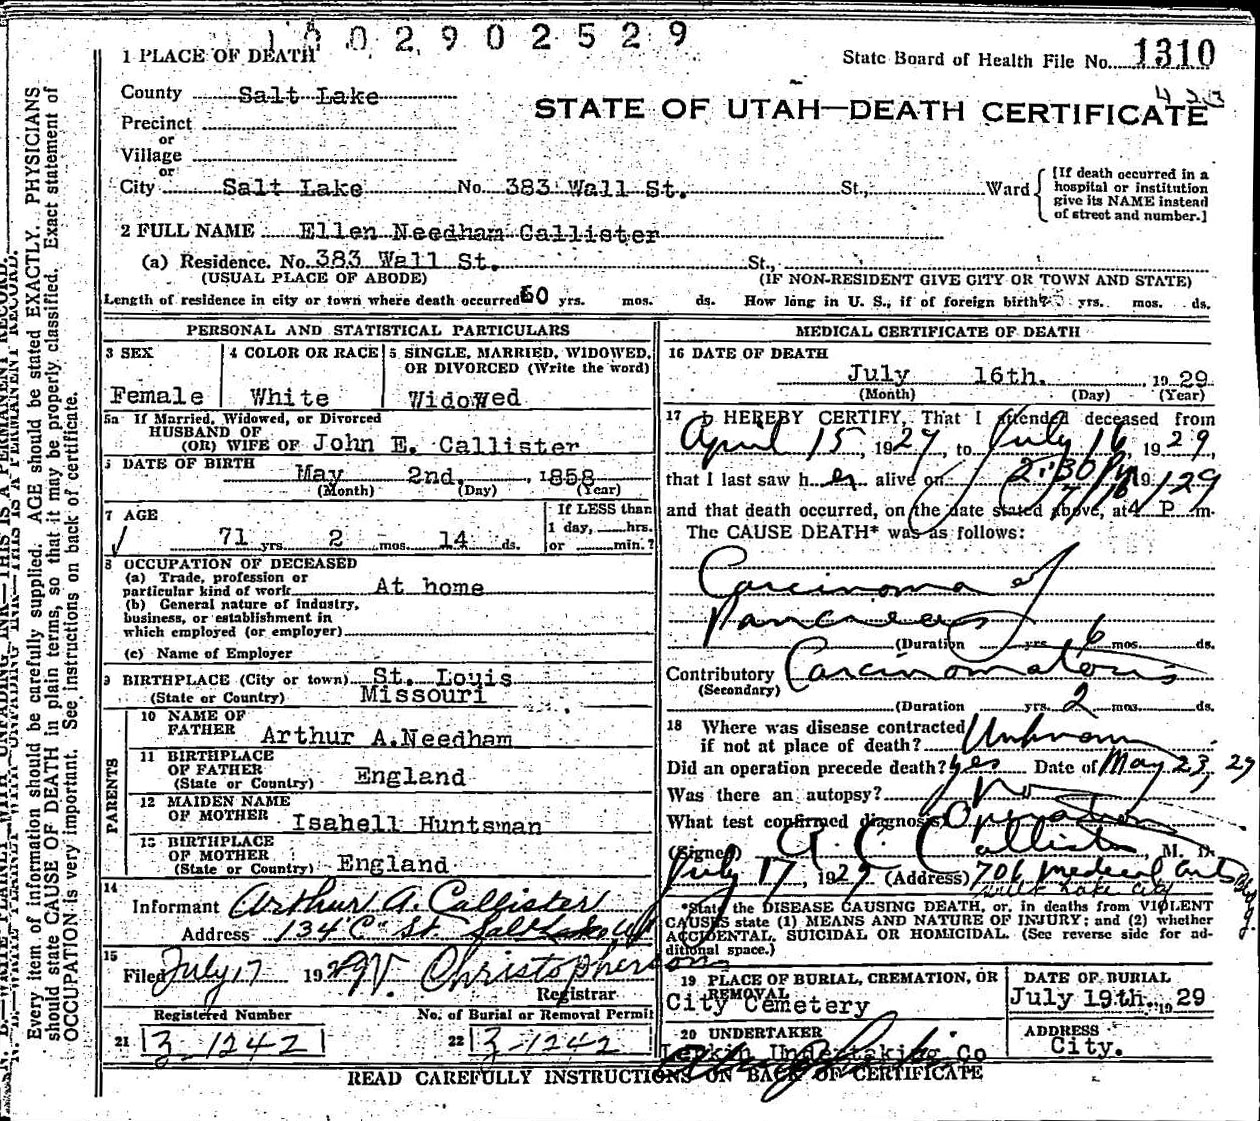 1 0 0 2 9 0 2 5 2 9
1 PLACE OF DEATH
State Board of Health File No. 1310
County Salt Lake
STATE OF UTAH—DEATH CERTIFICATE
Precinct
or
Village
or
City Salt Lake No. 383 Wall St. St., Ward
[If death occurred in a
hospital or institution
give its NAME instead
of street and number.]
2 FULL NAME Ellen Needham Callister
(a) Residence. No. 383 Wall St. St.,
(USUAL PLACE OF ABODE) (IF NON-RESIDENT GIVE CITY OR TOWN AND STATE)
Length of residence in city or town where death occurred 60 yrs. mos. ds. How long in U. S., if of foreign birth? yrs. mos. ds.
PERSONAL AND STATISTICAL PARTICULARS
3 SEX
Female
4 COLOR OR RACE
White
5 SINGLE, MARRIED, WIDOWED,
OR DIVORCED (Write the word)
Widowed
5a If Married, Widowed, or Divorced
HUSBAND OF
(OR) WIFE OF John E. Callister
DATE OF BIRTH
May 2nd. , 1858
(Month) (Day) (Year)
7 AGE
71 yrs. 2 mos. 14 ds.
If LESS than
1 day, hrs.
or min.?
8 OCCUPATION OF DECEASED
(a) Trade, profession or
particular kind of work At home
(b) General nature of Industry,
business, or establishment in
which employed (or employer)
(c) Name of Employer
9 BIRTHPLACE (City or town) St. Louis
(State or Country) Missouri
PARENTS
10 NAME OF
FATHER Arthur A.Needham
11 BIRTHPLACE
OF FATHER
(State or Country) England
12 MAIDEN NAME
OF MOTHER Isabell Huntsman
13 BIRTHPLACE
OF MOTHER
(State or Country) England
14
Informant Arthur A. Callister
Address 134 "C" St. Salt Lake City
15
Filed July 17 1929 W. Christopherson
Registrar
Registered Number
21 3-1242
No. of Burial or Removal Permit
22 3-1242
MEDICAL CERTIFICATE OF DEATH
16 DATE OF DEATH
July 16th. , 1929
(Month) (Day) (Year)
17 I HEREBY CERTIFY, That I attended deceased from
April 15, 1927, to July 16 1929,
that I last saw her alive on 2:30 PM 7/16 1929
and that death occurred, on the date stated above, at 4 P. m.
The CAUSE DEATH* was as follows:
Carcinoma of
Pancreas
(Duration yrs. 6 mos. ds.
Contributory Carcinomatosis
(Secondary)
(Duration yrs. 2 mos. ds.
18 Where was disease contracted
if not at place of death? Unknown
Did an operation precede death? yes Date of May 23, 29
Was there an autopsy? No
What test confirmed diagnosis Operation
(Signed) A. C. Callister, M. D.
July 17, 1929 (Address) 701 Medical Arts Bldg.
Salt Lake City
*State the DISEASE CAUSING DEATH, or, in deaths from VIOLENT
CAUSES state (1) MEANS AND NATURE OF INJURY; and (2) whether
ACCIDENTAL, SUICIDAL OR HOMICIDAL. (See reverse side for ad-
ditional space.)
19 PLACE OF BURIAL, CREMATION, OR
REMOVAL
City Cemetery
DATE OF BURIAL
July 19th., 1929
20 UNDERTAKER
Larkin Undertaking Co
ADDRESS
City.
READ CAREFULLY INSTRUCTIONS ON BACK OF CERTIFICATE
Every item of information should be carefully supplied. AGE should be stated EXACTLY. PHYSICIANS
should state CAUSE OF DEATH in plain terms, so that it may be properly classified. Exact statement of
OCCUPATION is very important. See instructions on back of certificate.